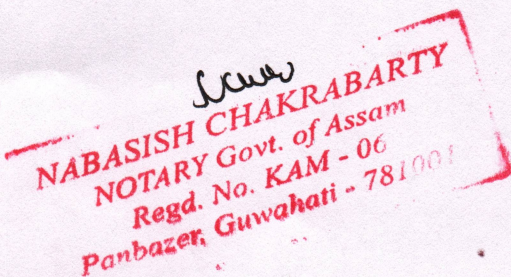 NABASISH CHAKRABARTY
NOTARY Govt. of Assam
Regd. No. KAM - 06
Panbazer, Guwahati - 781001